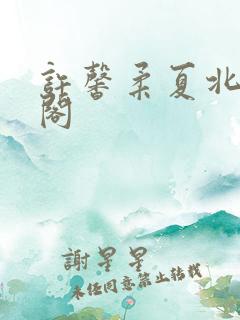 許馨柔夏北
閣
謝星星
未经同意禁止转载